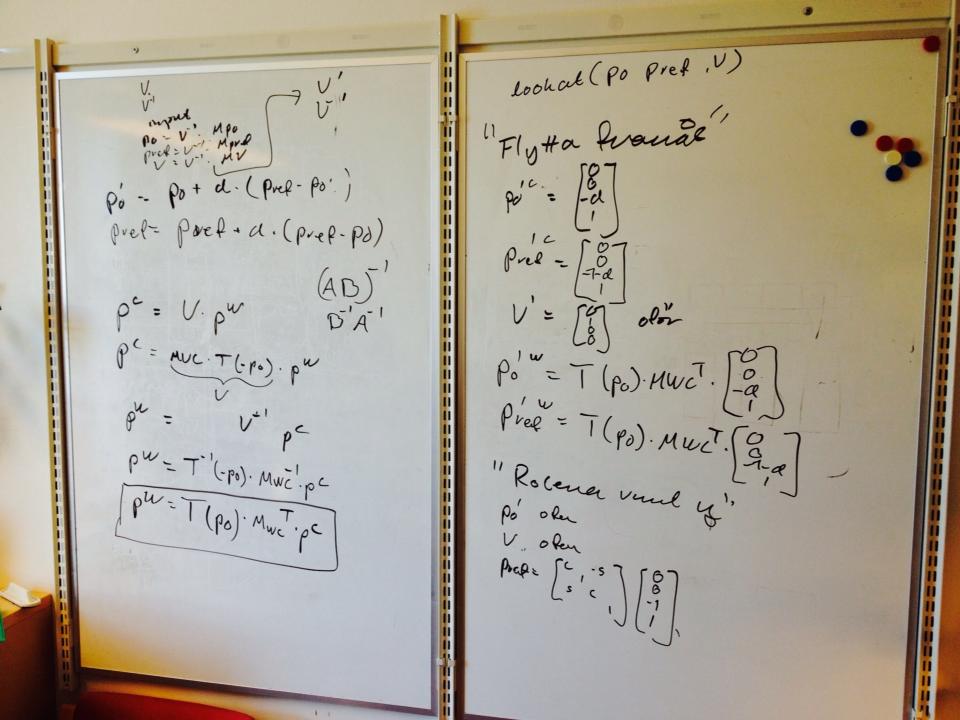 V
V⁻¹
input
p0 = V⁻¹ · Mp0
pref = V⁻¹ · Mpref
V = V⁻¹ · MV
V'
V⁻¹'
p0' = p0 + d · (pref - p0)
pref = pref + d · (pref - p0)
(AB)⁻¹
B⁻¹A⁻¹
p^c = V · p^w
p^c = MWC · T(-p0) · p^w
V
p^w = V⁻¹ p^c
p^w = T⁻¹(-p0) · MWC⁻¹ · p^c
p^w = T(p0) · MWC^T · p^c
lookat(p0 pref, V)
"Flytta framåt"
p0'^c = [0 0 -d 1]
pref'^c = [0 0 -1-d 1]
V' = [0 1 0 0]
p0'^w = T(p0) · MWC^T · [0 0 -d 1]
pref'^w = T(p0) · MWC^T · [0 0 -1-d 1]
"Rotera runt y"
p0'
V
pref = [c, -s s c 1] [0 0 -1 1]